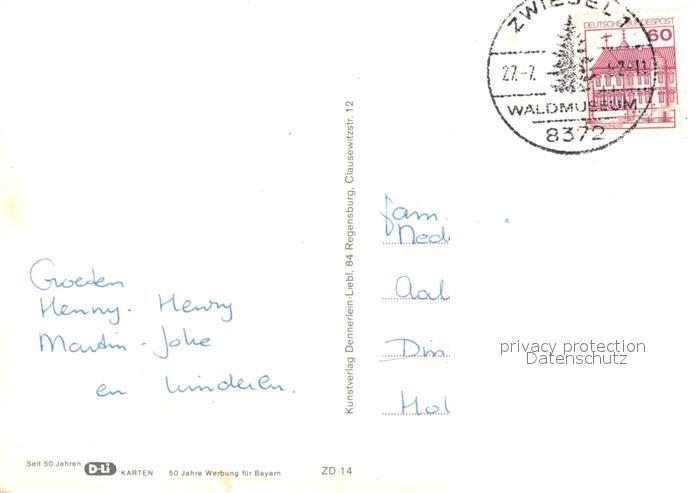 ZWIESEL 1
27.-7.
WALDMUSEUM
8372
DEUTSCHE BUNDESPOST
60
Kunstverlag Dennerlein-Liebl, 84 Regensburg, Clausewitzstr. 12
Groeten
Henny. Henry
Martin - Joke
en kinderen.
fam.
Ned
Aal
Din
Hol
privacy protection
Datenschutz
Seit 50 Jahren D-Li KARTEN 50 Jahre Werbung für Bayern
ZD 14